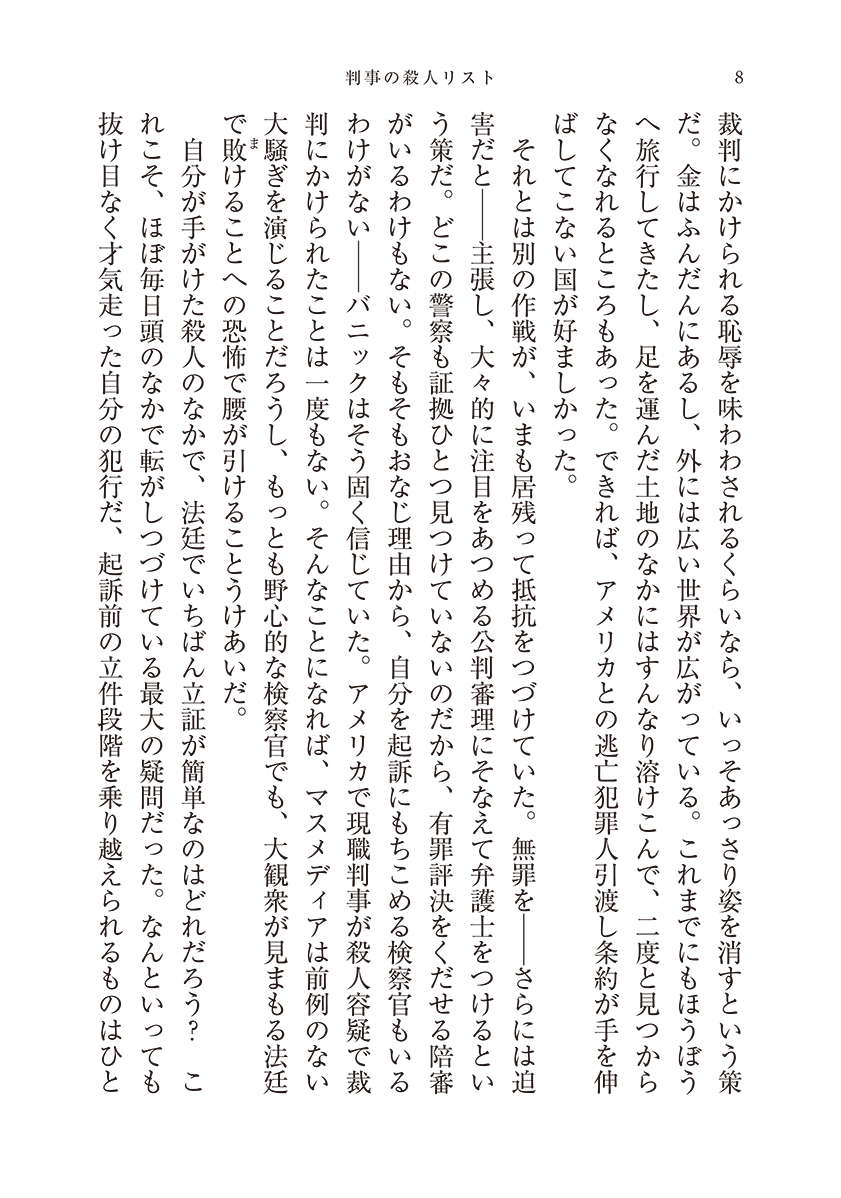 判事の殺人リスト
8
裁判にかけられる恥辱を味わわされるくらいなら、いっそあっさり姿を消すという策
だ。金はふんだんにあるし、外には広い世界が広がっている。これまでにもほうぼう
へ旅行してきたし、足を運んだ土地のなかにはすんなり溶けこんで、二度と見つから
なくなれるところもあった。できれば、アメリカとの逃亡犯罪人引渡し条約が手を伸
ばしてこない国が好ましかった。
　それとは別の作戦が、いまも居残って抵抗をつづけていた。無罪を――さらには迫
害だと――主張し、大々的に注目をあつめる公判審理にそなえて弁護士をつけるとい
う策だ。どこの警察も証拠ひとつ見つけていないのだから、有罪評決をくだせる陪審
がいるわけもない。そもそもおなじ理由から、自分を起訴にもちこめる検察官もいる
わけがない――バニックはそう固く信じていた。アメリカで現職判事が殺人容疑で裁
判にかけられたことは一度もない。そんなことになれば、マスメディアは前例のない
大騒ぎを演じることだろうし、もっとも野心的な検察官でも、大観衆が見まもる法廷
で敗けることへの恐怖で腰が引けることうけあいだ。
ま
　自分が手がけた殺人のなかで、法廷でいちばん立証が簡単なのはどれだろう？　こ
れこそ、ほぼ毎日頭のなかで転がしつづけている最大の疑問だった。なんといっても
抜け目なく才気走った自分の犯行だ、起訴前の立件段階を乗り越えられるものはひと